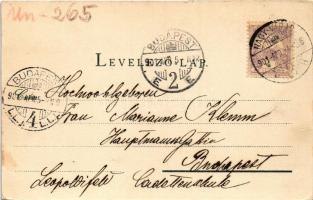 Un-265
LEVELEZŐ-LAP.
BUDAPEST
2
BUDAPEST
4
Hochwohlgeboren
Frau Marianne Klemm
Hauptmannsgattin
Budapest
Leopoldifeld Cadettenschule